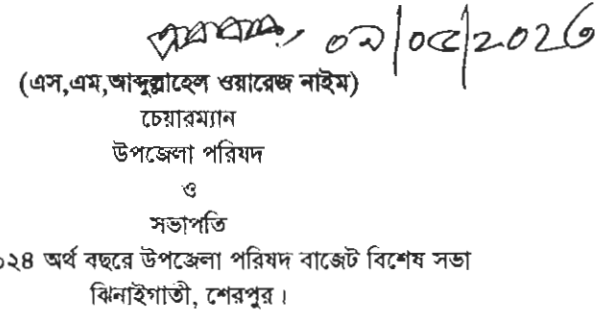 ০৯/০৫/২০২৩
(এস,এম,আব্দুল্লাহেল ওয়ারেজ নাইম)
চেয়ারম্যান
উপজেলা পরিষদ
ও
সভাপতি
২৪ অর্থ বছরে উপজেলা পরিষদ বাজেট বিশেষ সভা
ঝিনাইগাতী, শেরপুর।